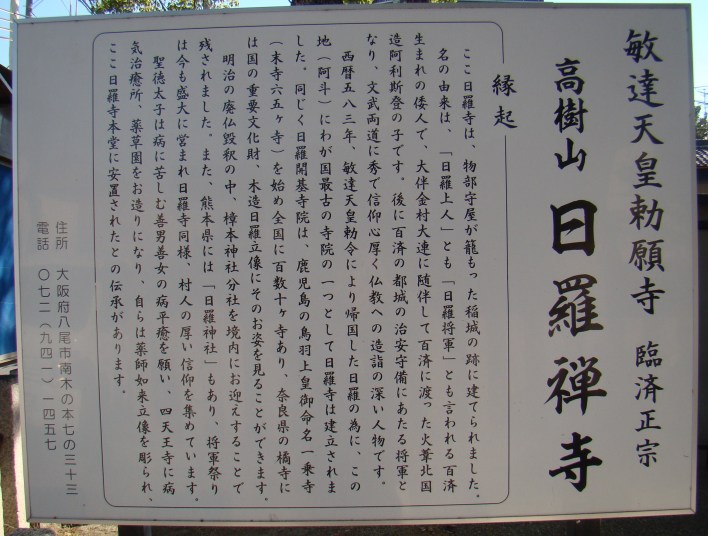 敏達天皇勅願寺　臨済正宗
高樹山　日羅禅寺
縁起
ここ日羅寺は、物部守屋が籠もった稲城の跡に建てられました。
名の由来は、「日羅上人」とも「日羅将軍」とも言われる百済
生まれの倭人で、大伴金村大連に随伴して百済に渡った火葦北国
造阿利斯登の子です。後に百済の都城の治安守備にあたる将軍と
なり、文武両道に秀で信仰心厚く仏教への造詣の深い人物です。
西暦五八三年、敏達天皇勅令により帰国した日羅の為に、この
地（阿斗）にわが国最古の寺院の一つとして日羅寺は建立されま
した。同じく日羅開基寺院は、鹿児島の鳥羽上皇御命名一乗寺
（末寺六五ヶ寺）を始め全国に百数十ヶ寺あり、奈良県の橘寺に
は国の重要文化財、木造日羅立像にそのお姿を見ることができます。
明治の廃仏毀釈の中、樟本神社分社を境内にお迎えすることで
残されました。また、熊本県には「日羅神社」もあり、将軍祭り
は今も盛大に営まれ日羅寺同様、村人の厚い信仰を集めています。
聖徳太子は病に苦しむ善男善女の病平癒を願い、四天王寺に病
気治療所、薬草園をお造りになり、自らは薬師如来立像を彫られ、
ここ日羅寺本堂に安置されたとの伝承があります。
住所　大阪府八尾市南木の本七の三十三
電話　〇七二（九四一）一四五七